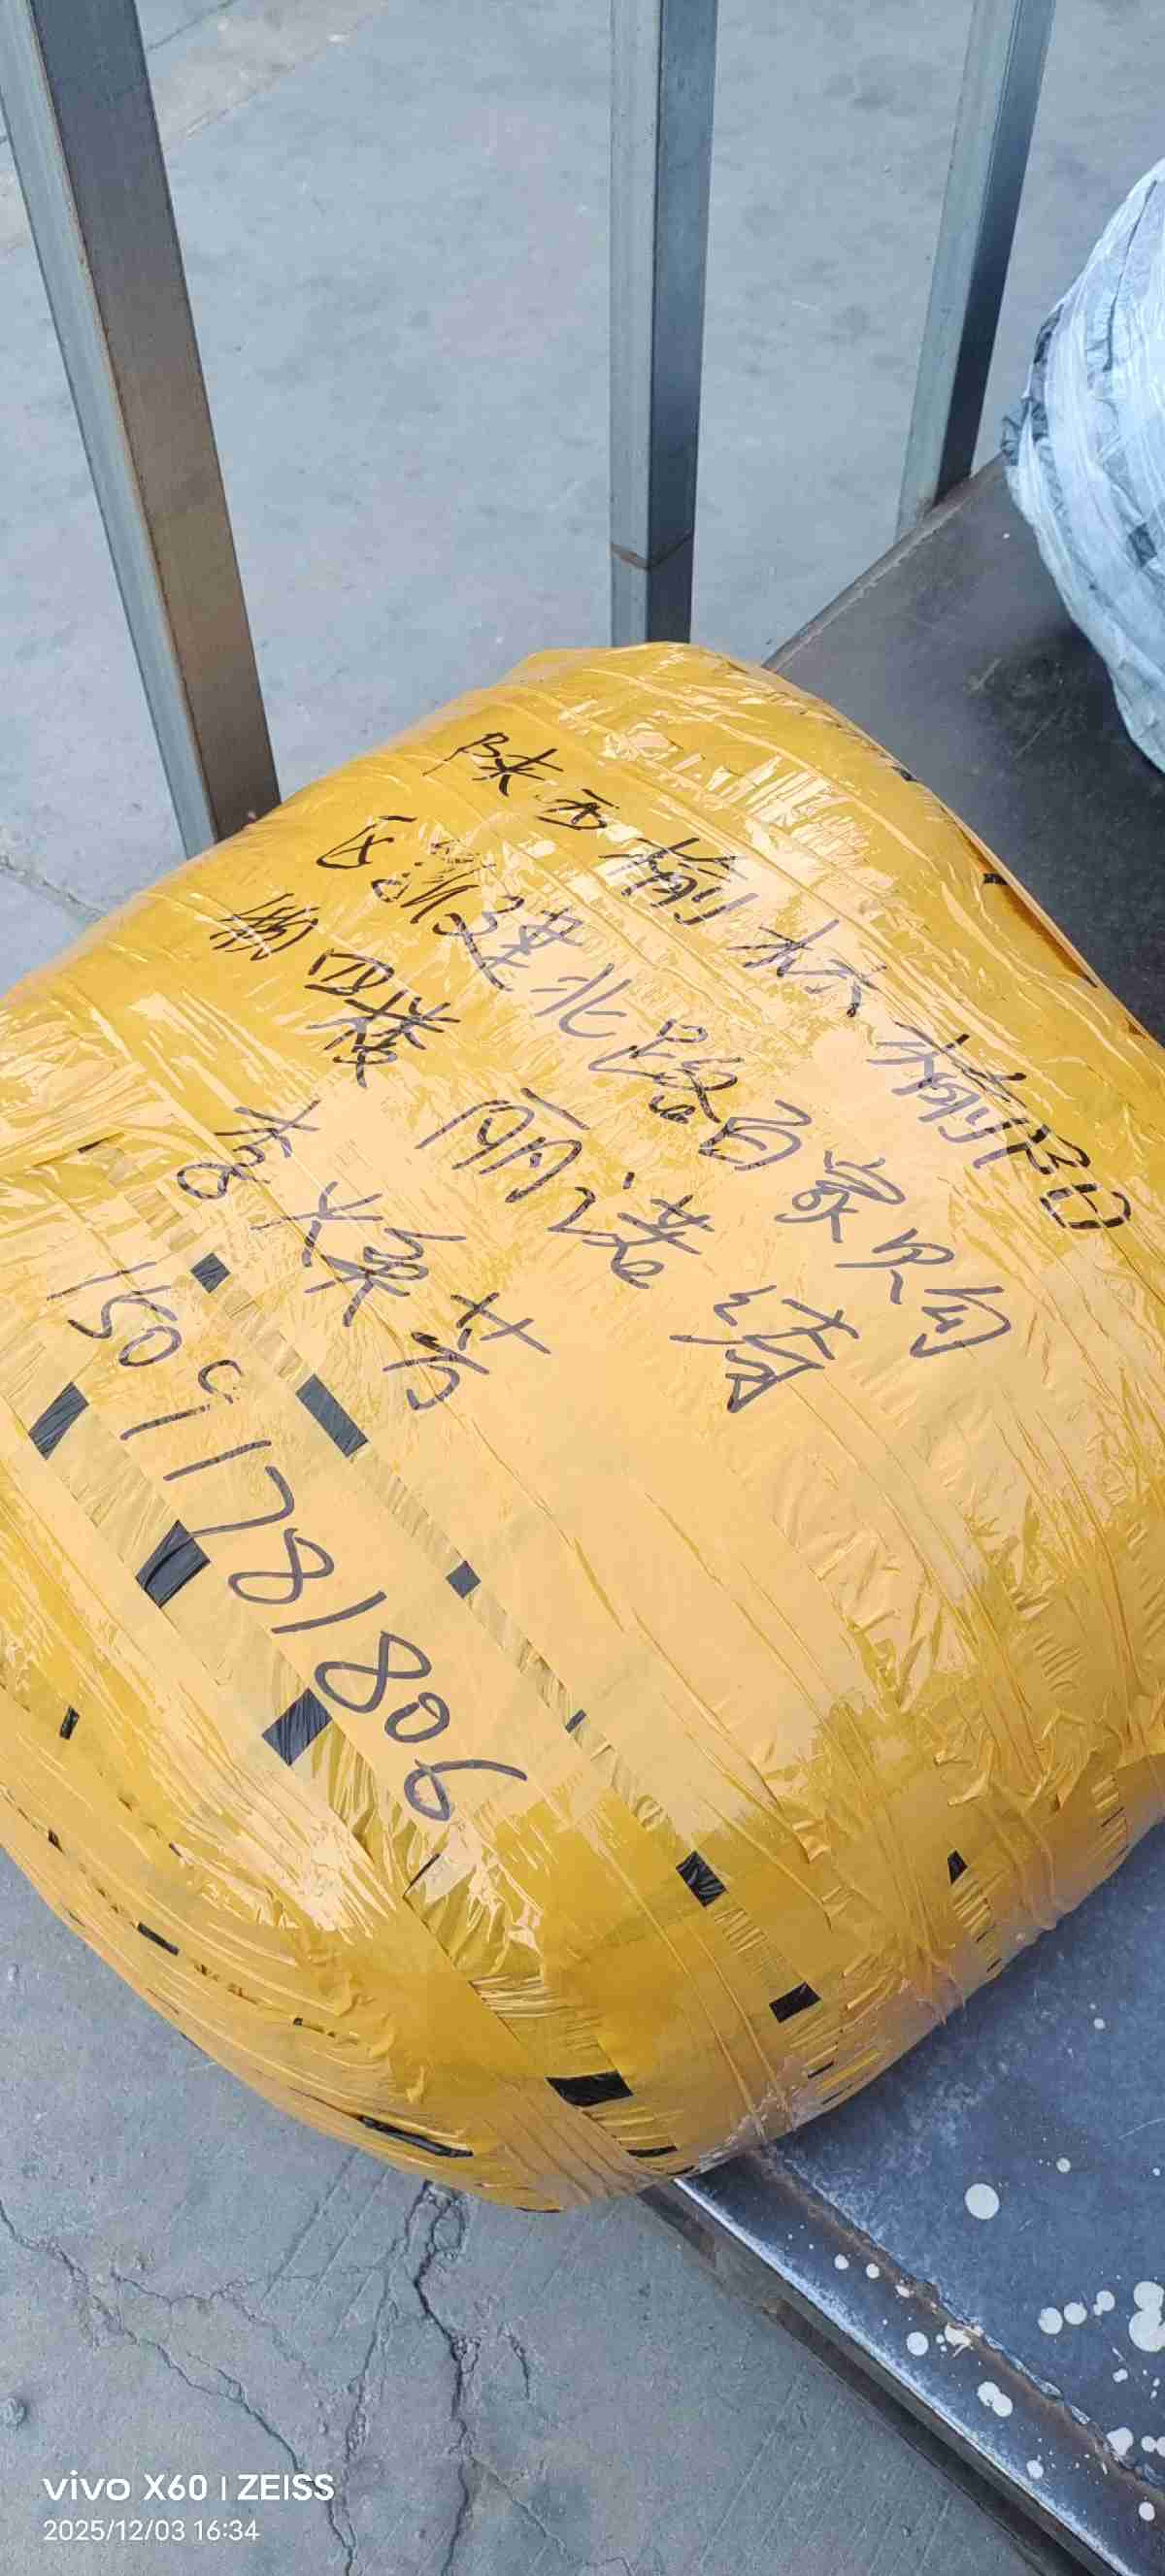 陕西榆林榆阳
区凯过建北路百家贝向
南四楼 丽诺绮
李焕芳
15091781806
vivo X60 | ZEISS
2025/12/03 16:34